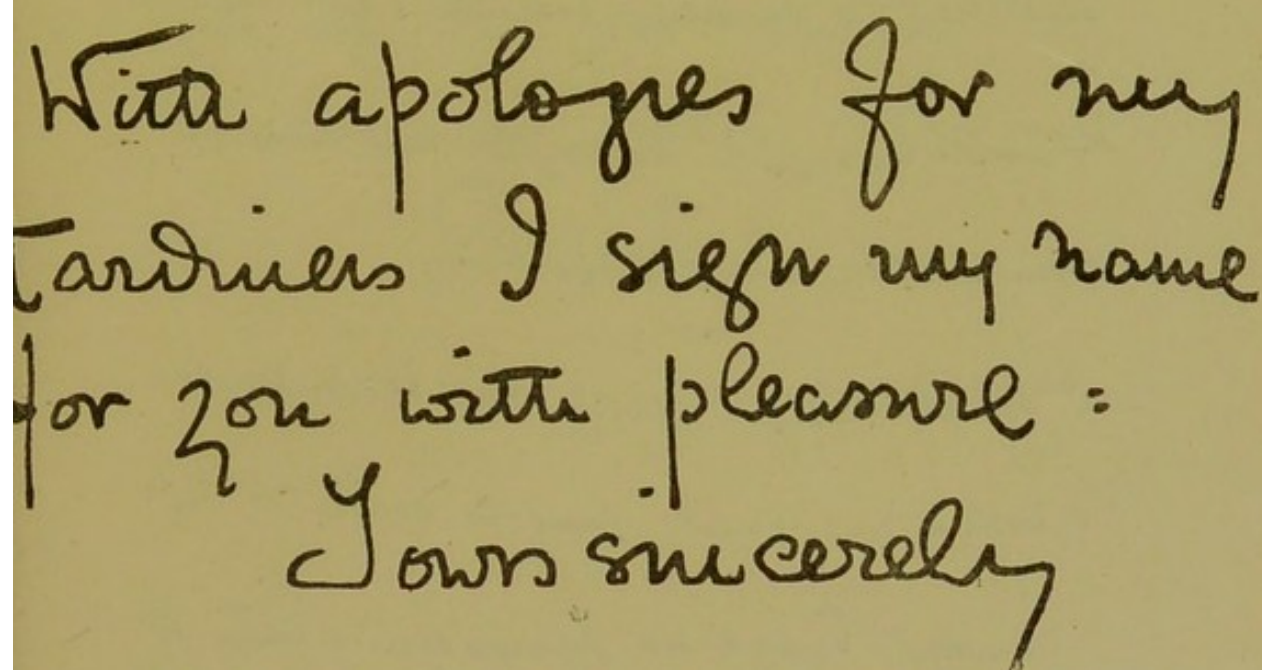 With apologies for my
tardiness I sign my name
for you with pleasure :
Yours sincerely